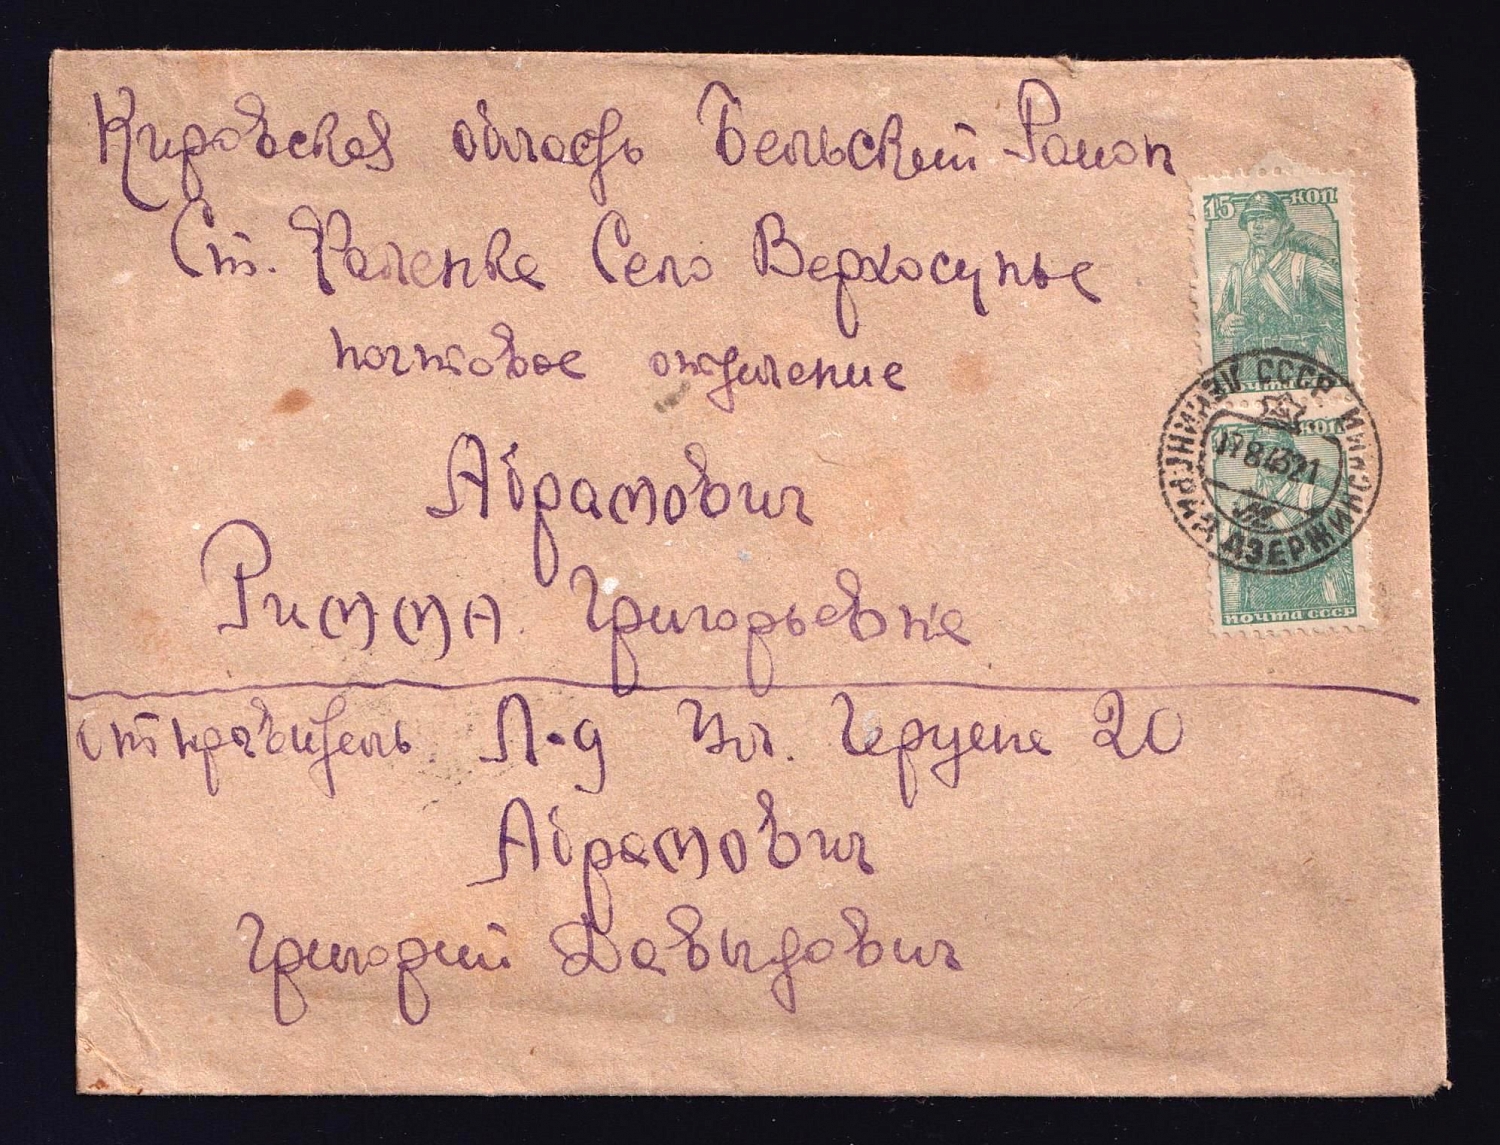 Кировская область Бельский Район
Ст. Фаленка Село Верхосунье
почтовое отделение
Абрамович
Римма Григорьевна
отправитель Л-д Ул. Герцена 20
Абрамович
Григорий Давыдович
15 КОП
ПОЧТА СССР
15 КОП
ПОЧТА СССР
ЛЕНИНГРАД ДЗЕРЖИНСКИЙ СССР
17 8 43 21